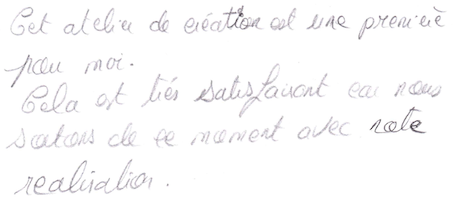 Cet atelier de création est une première
pour moi.
Cela est très satisfaisant car nous
sortons de ce moment avec note
realisation.